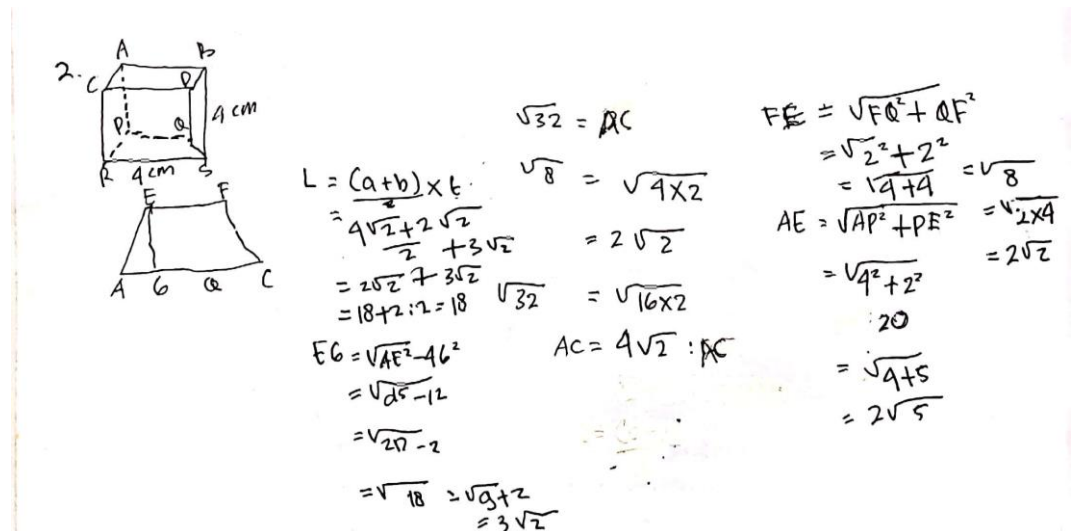 2.
A B
C D
P Q
R S
4 cm
4 cm
E F
A G Q C
L = (a+b) × t
2
= 4√2 + 2√2
2 + 3√2
= 2√2 + 3√2
= 18+2:2 = 18
EG = √AE² - AG²
= √
= √20 - 2
= √18 = √9+2
= 3√2
√32 = AC
√8 = √4×2
= 2√2
√32 = √16×2
AC = 4√2 : AC
FE = √FQ² + QF²
= √2² + 2²
= √4+4 = √8
= √2×4
= 2√2
AE = √AP² + PE²
= √4² + 2²
: 20
= √4+5
= 2√5